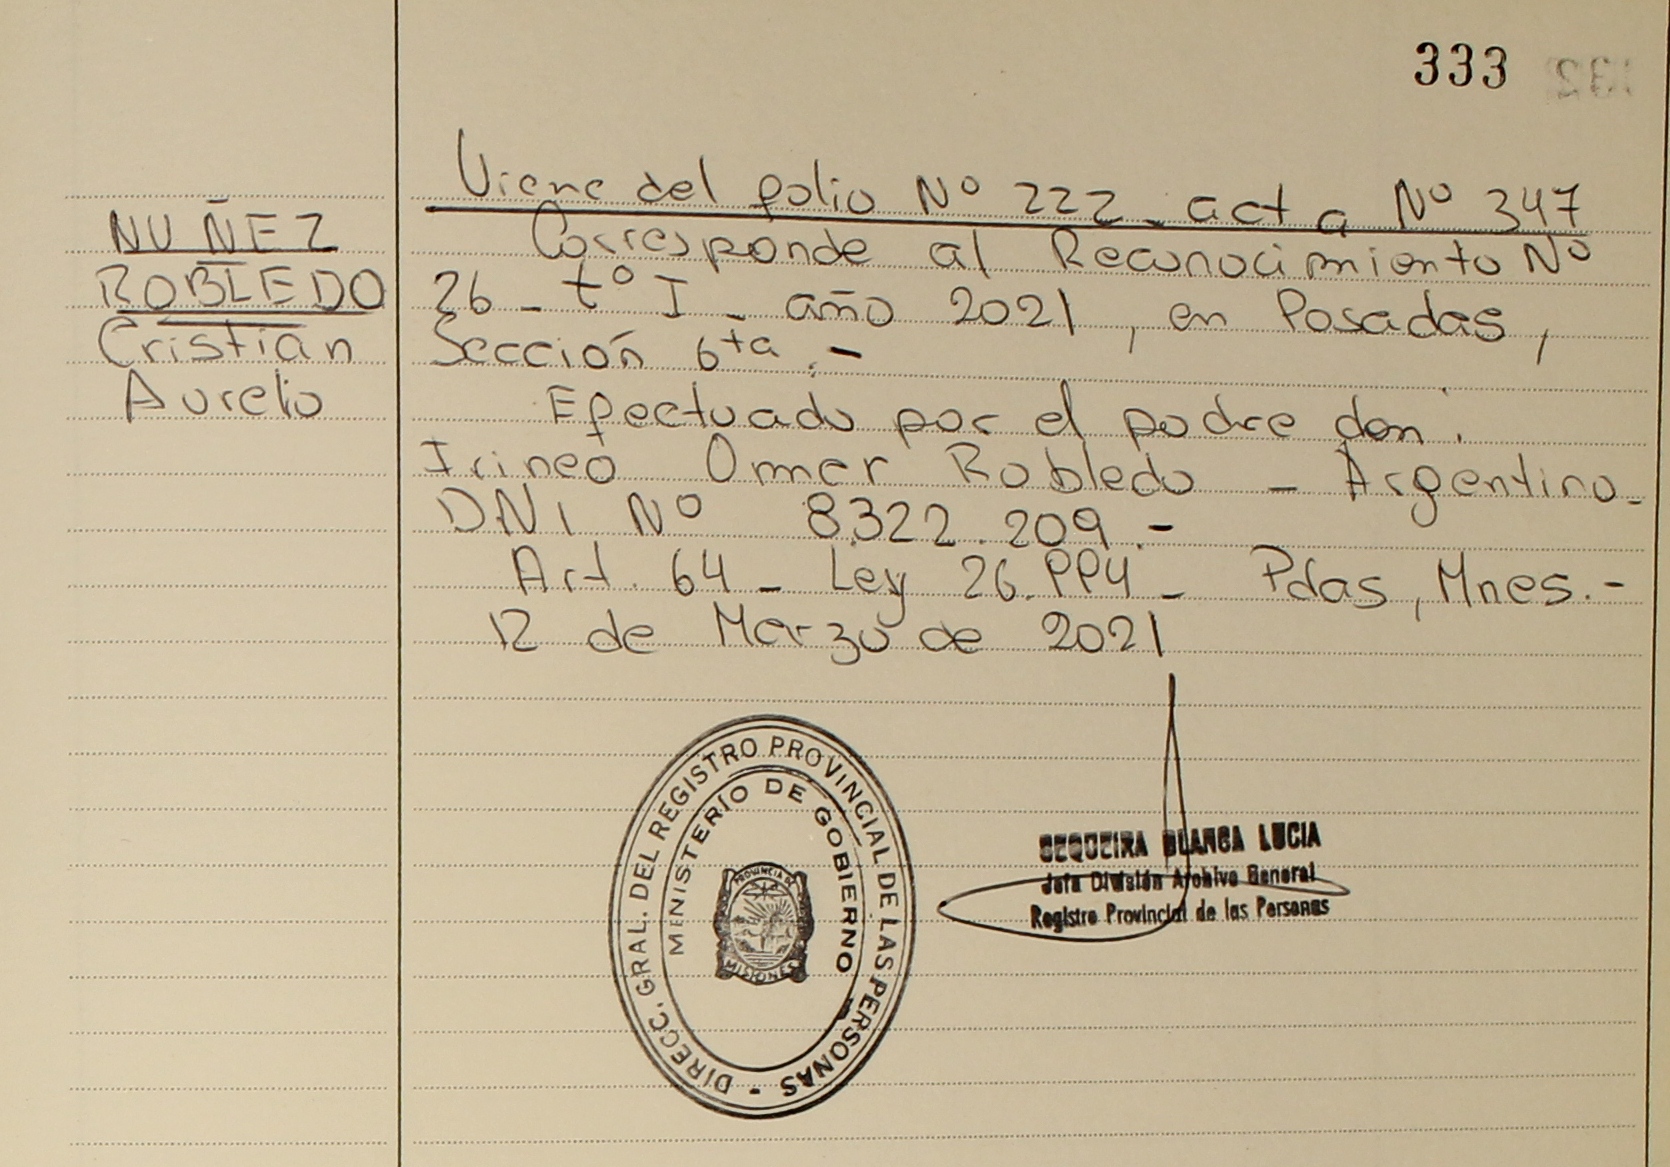 333
Viene del folio Nº 222 - acta Nº 347
NUÑEZ
Corresponde al Reconocimiento Nº
ROBLEDO
26 - tº I - año 2021, en Posadas,
Cristian
Sección 6ta.-
Aurelio
Efectuado por el padre don:
Irineo Omar Robledo - Argentino -
DNI Nº 8.322.209.-
Art. 64 - Ley 26.994 - Pdas, Mnes.-
12 de Marzo de 2021
DIRECC. GRAL. DEL REGISTRO PROVINCIAL DE LAS PERSONAS -
MINISTERIO DE GOBIERNO
PROVINCIA DE
MISIONES
SEQUEIRA BLANCA LUCIA
Jefa División Archivo General
Registro Provincial de las Personas